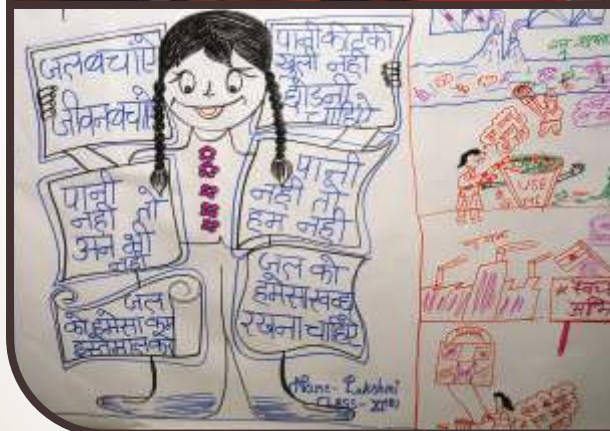 जल बचाऐ
जीवन बचाऐ
खुली नही
छोडनी
चाहिऐ
पानी
नही तो
अन भी
नही
पानी
नही तो
हम नही
जल
को हमेसा कम
इस्तेमाल करे
जल को
हमेसा स्वच्छ
रखना चाहिऐ
Name - Lakshmi
CLASS -
USE
ME